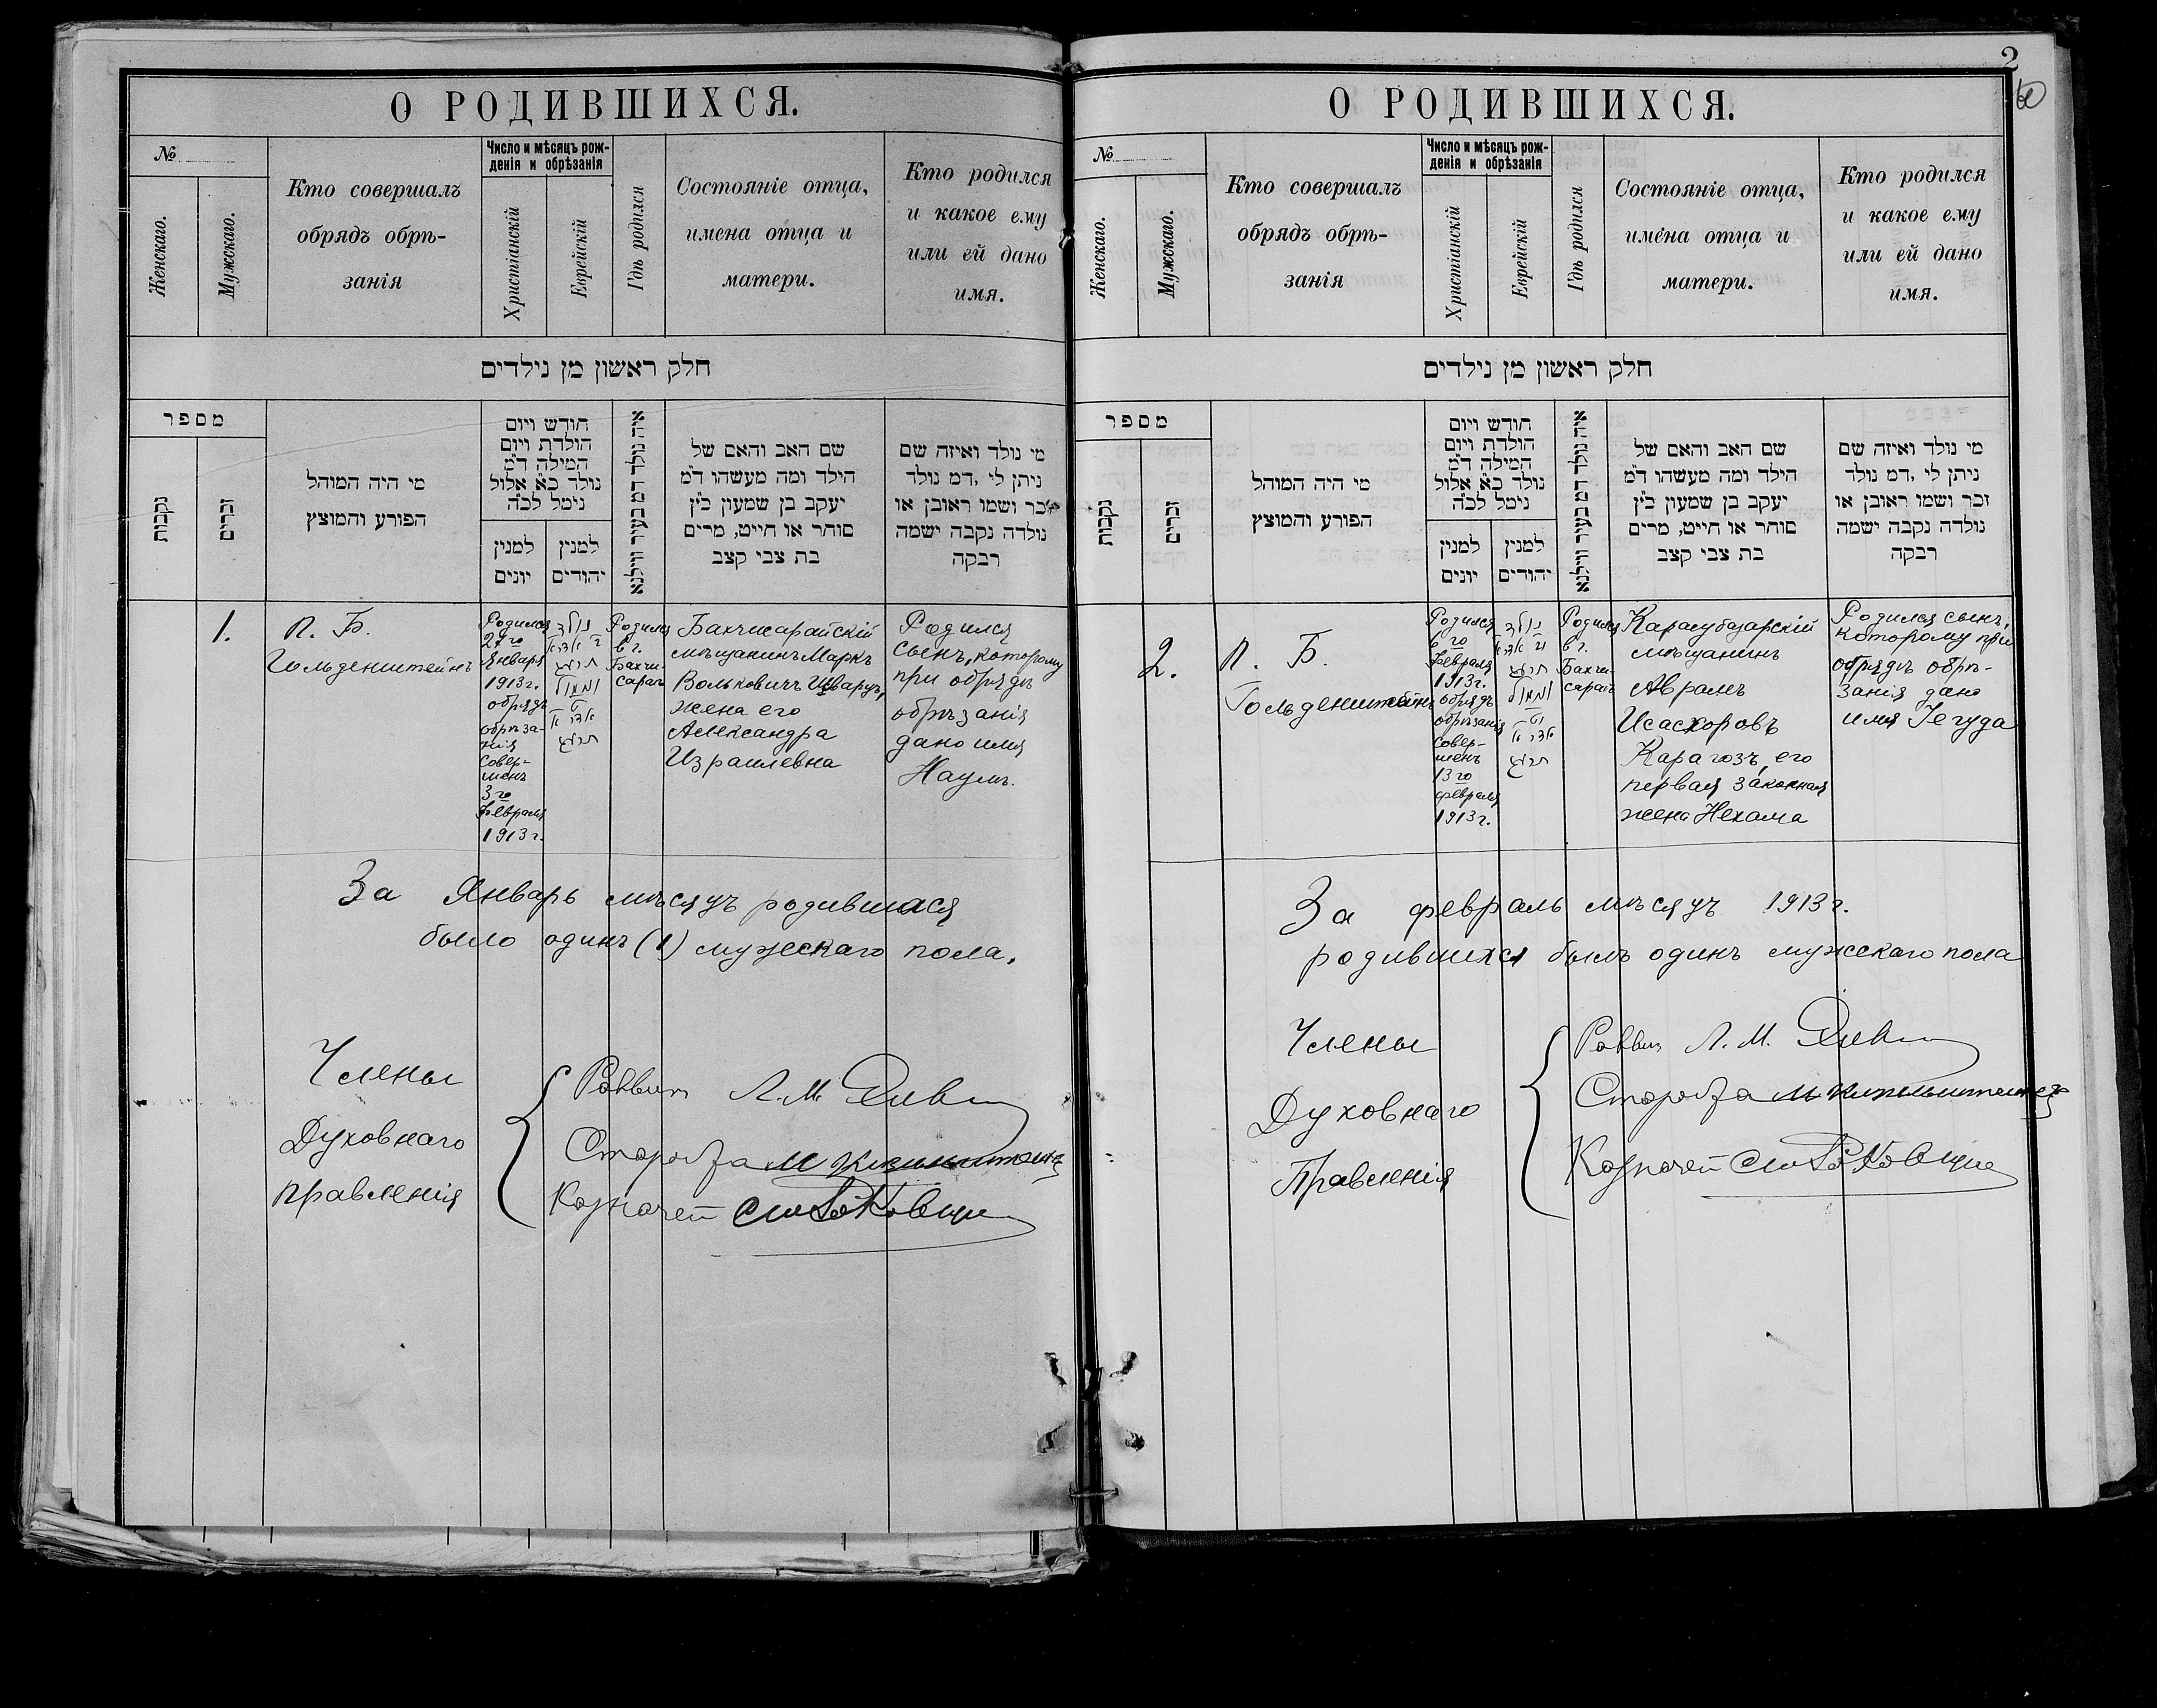 О РОДИВШИХСЯ.
№
Женскаго.
Мужскаго.
Кто совершалъ
обрядъ обрѣ-
занія
Число и мѣсяцъ рож-
денія и обрѣзанія
Христіанскій
Еврейскій
Гдѣ родился
Состояніе отца,
имена отца и
матери.
Кто родился
и какое ему
или ей дано
имя.
חלק ראשון מן נילדים
מספר
נקבות
זכרים
מי היה המוהל
הפורע והמוצץ
חודש ויום
הולדת ויום
המילה ד״מ
נולד כ״א אלול
נימל לכ״ה
למנין
יונים
למנין
יהודים
איה נולד דמ בעיר ווילנא
שם האב והאם של
הילד ומה מעשהו ד״מ
יעקב בן שמעון כ״ץ
סוחר או חייט, מרים
בת צבי קצב
מי נולד ואיזה שם
ניתן לי ,דמ נולד
זכר ושמו ראובן או
נולדה נקבה ישמה
רבקה
1.
П. Б.
Гольденштейнъ
Родился
27го
Января
1913г.
обрядъ
обрѣза-
нія
совер-
шенъ
3го
Февраля
1913г.
נולד
תרעג
ונמול
תרעג
Родился
в г.
Бахчи-
сараѣ
Бахчисарайскій
мѣщанинъ Маркъ
Вольковичъ Шварцъ,
жена его
Александра
Израилевна
Родился
сынъ, которому
при обрядѣ
обрѣзанія
дано имя
Наумъ.
За Январь мѣсяцъ родившихся
было одинъ (1) мужескаго пола.
Члены
Духовнаго
правленія
Раввин Л. М.
Староста М
Казначей
2
О РОДИВШИХСЯ.
№
Женскаго.
Мужскаго.
Кто совершалъ
обрядъ обрѣ-
занія
Число и мѣсяцъ рож-
денія и обрѣзанія
Христіанскій
Еврейскій
Гдѣ родился
Состояніе отца,
имена отца и
матери.
Кто родился
и какое ему
или ей дано
имя.
חלק ראשון מן נילדים
מספר
נקבות
זכרים
מי היה המוהל
הפורע והמוצץ
חודש ויום
הולדת ויום
המילה ד״מ
נולד כ״א אלול
נימל לכ״ה
למנין
יונים
למנין
יהודים
איה נולד דמ בעיר ווילנא
שם האב והאם של
הילד ומה מעשהו ד״מ
יעקב בן שמעון כ״ץ
סוחר או חייט, מרים
בת צבי קצב
מי נולד ואיזה שם
ניתן לי ,דמ נולד
זכר ושמו ראובן או
נולדה נקבה ישמה
רבקה
2.
П. Б.
Гольденштейнъ
Родился
6го
Февраля
1913г.
обрядъ
обрѣзанія
совер-
шенъ
13го
февраля
1913г.
נולד
תרעג
ונמול
תרעג
Родился
в г.
Бахчи-
сараѣ
Карасубазарскій
мѣщанинъ
Аврамъ
Исасхоровъ
Карагозъ, его
первая законная
жена Нехама
Родился сынъ,
которому при
обрядѣ обрѣ-
занія дано
имя Іегуда
За февраль мѣсяцъ 1913г.
родившихся былъ одинъ мужескаго пола
Члены
Духовнаго
Правленія
Раввин Л. М.
Староста М
Казначей